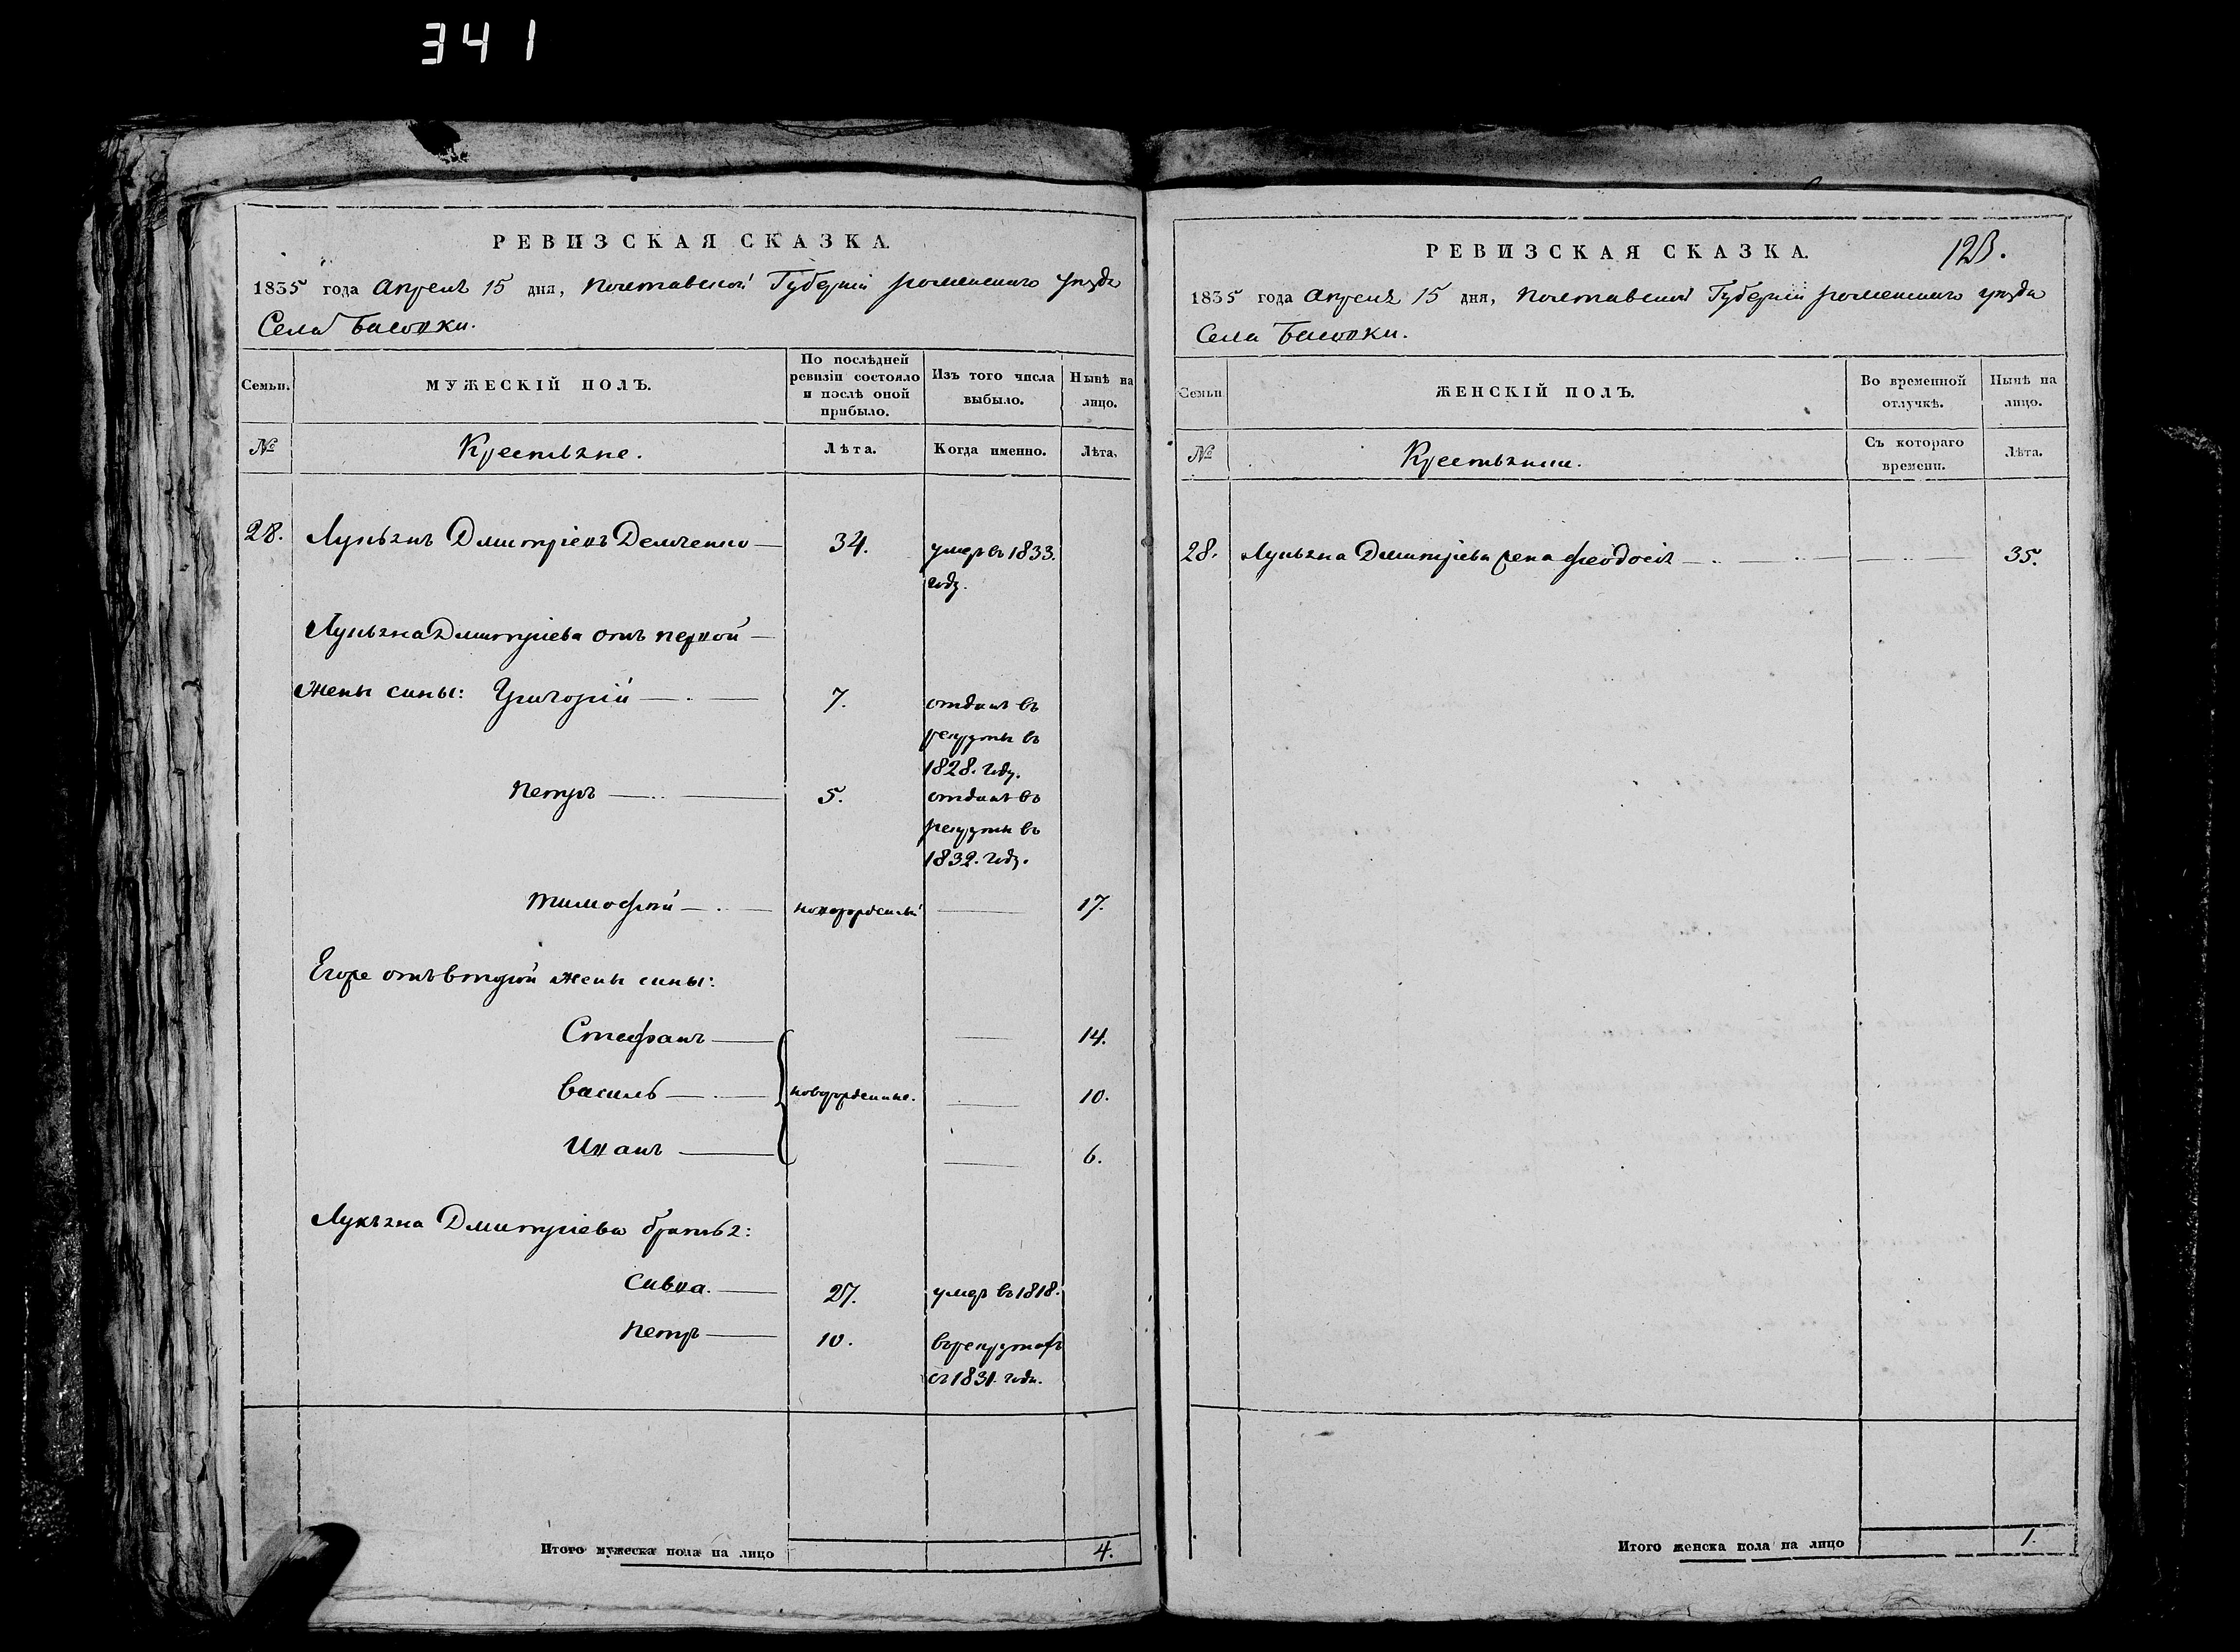 341
РЕВИЗСКАЯ СКАЗКА.
1835 года Апреля 15 дня, Полтавской Губерніи роменского уезда
Села Басовки.
Семьи.
МУЖЕСКІЙ ПОЛЪ.
По послѣдней ревизіи состояло и послѣ оной прибыло.
Изъ того числа выбыло.
Нынѣ на лицо.
№
Крестьяне.
Лѣта.
Когда именно.
Лѣта.
28. Лукьянъ Дмитріевъ Демченко 34. умеръ въ 1833.
году.
Лукьяна Дмитріева отъ первой
жены сины: Григорій 7. отданъ въ
рекруты въ
1828. году.
Петръ 5. отданъ въ
рекруты въ
1832. году.
Тимофей новорожденный 17.
Егоре отъ второй жены сины:
Стефанъ 14.
Василь новорожденные. 10.
Иванъ 6.
Лукьяна Дмитріева братья:
Савва. 27. умеръ въ 1818.
Петръ 10. въ рекрутахъ
съ 1831. года.
Итого мужеска пола на лицо 4.
РЕВИЗСКАЯ СКАЗКА.
123.
1835 года Апреля 15 дня, Полтавской Губерніи роменского уезда
Села Басовки.
Семьи
ЖЕНСКІЙ ПОЛЪ.
Во временной отлучкѣ.
Нынѣ на лицо.
№
Крестьянки.
Съ котораго времени.
Лѣта.
28. Лукьяна Дмитріева жена Феодосія 35.
Итого женска пола на лицо 1.